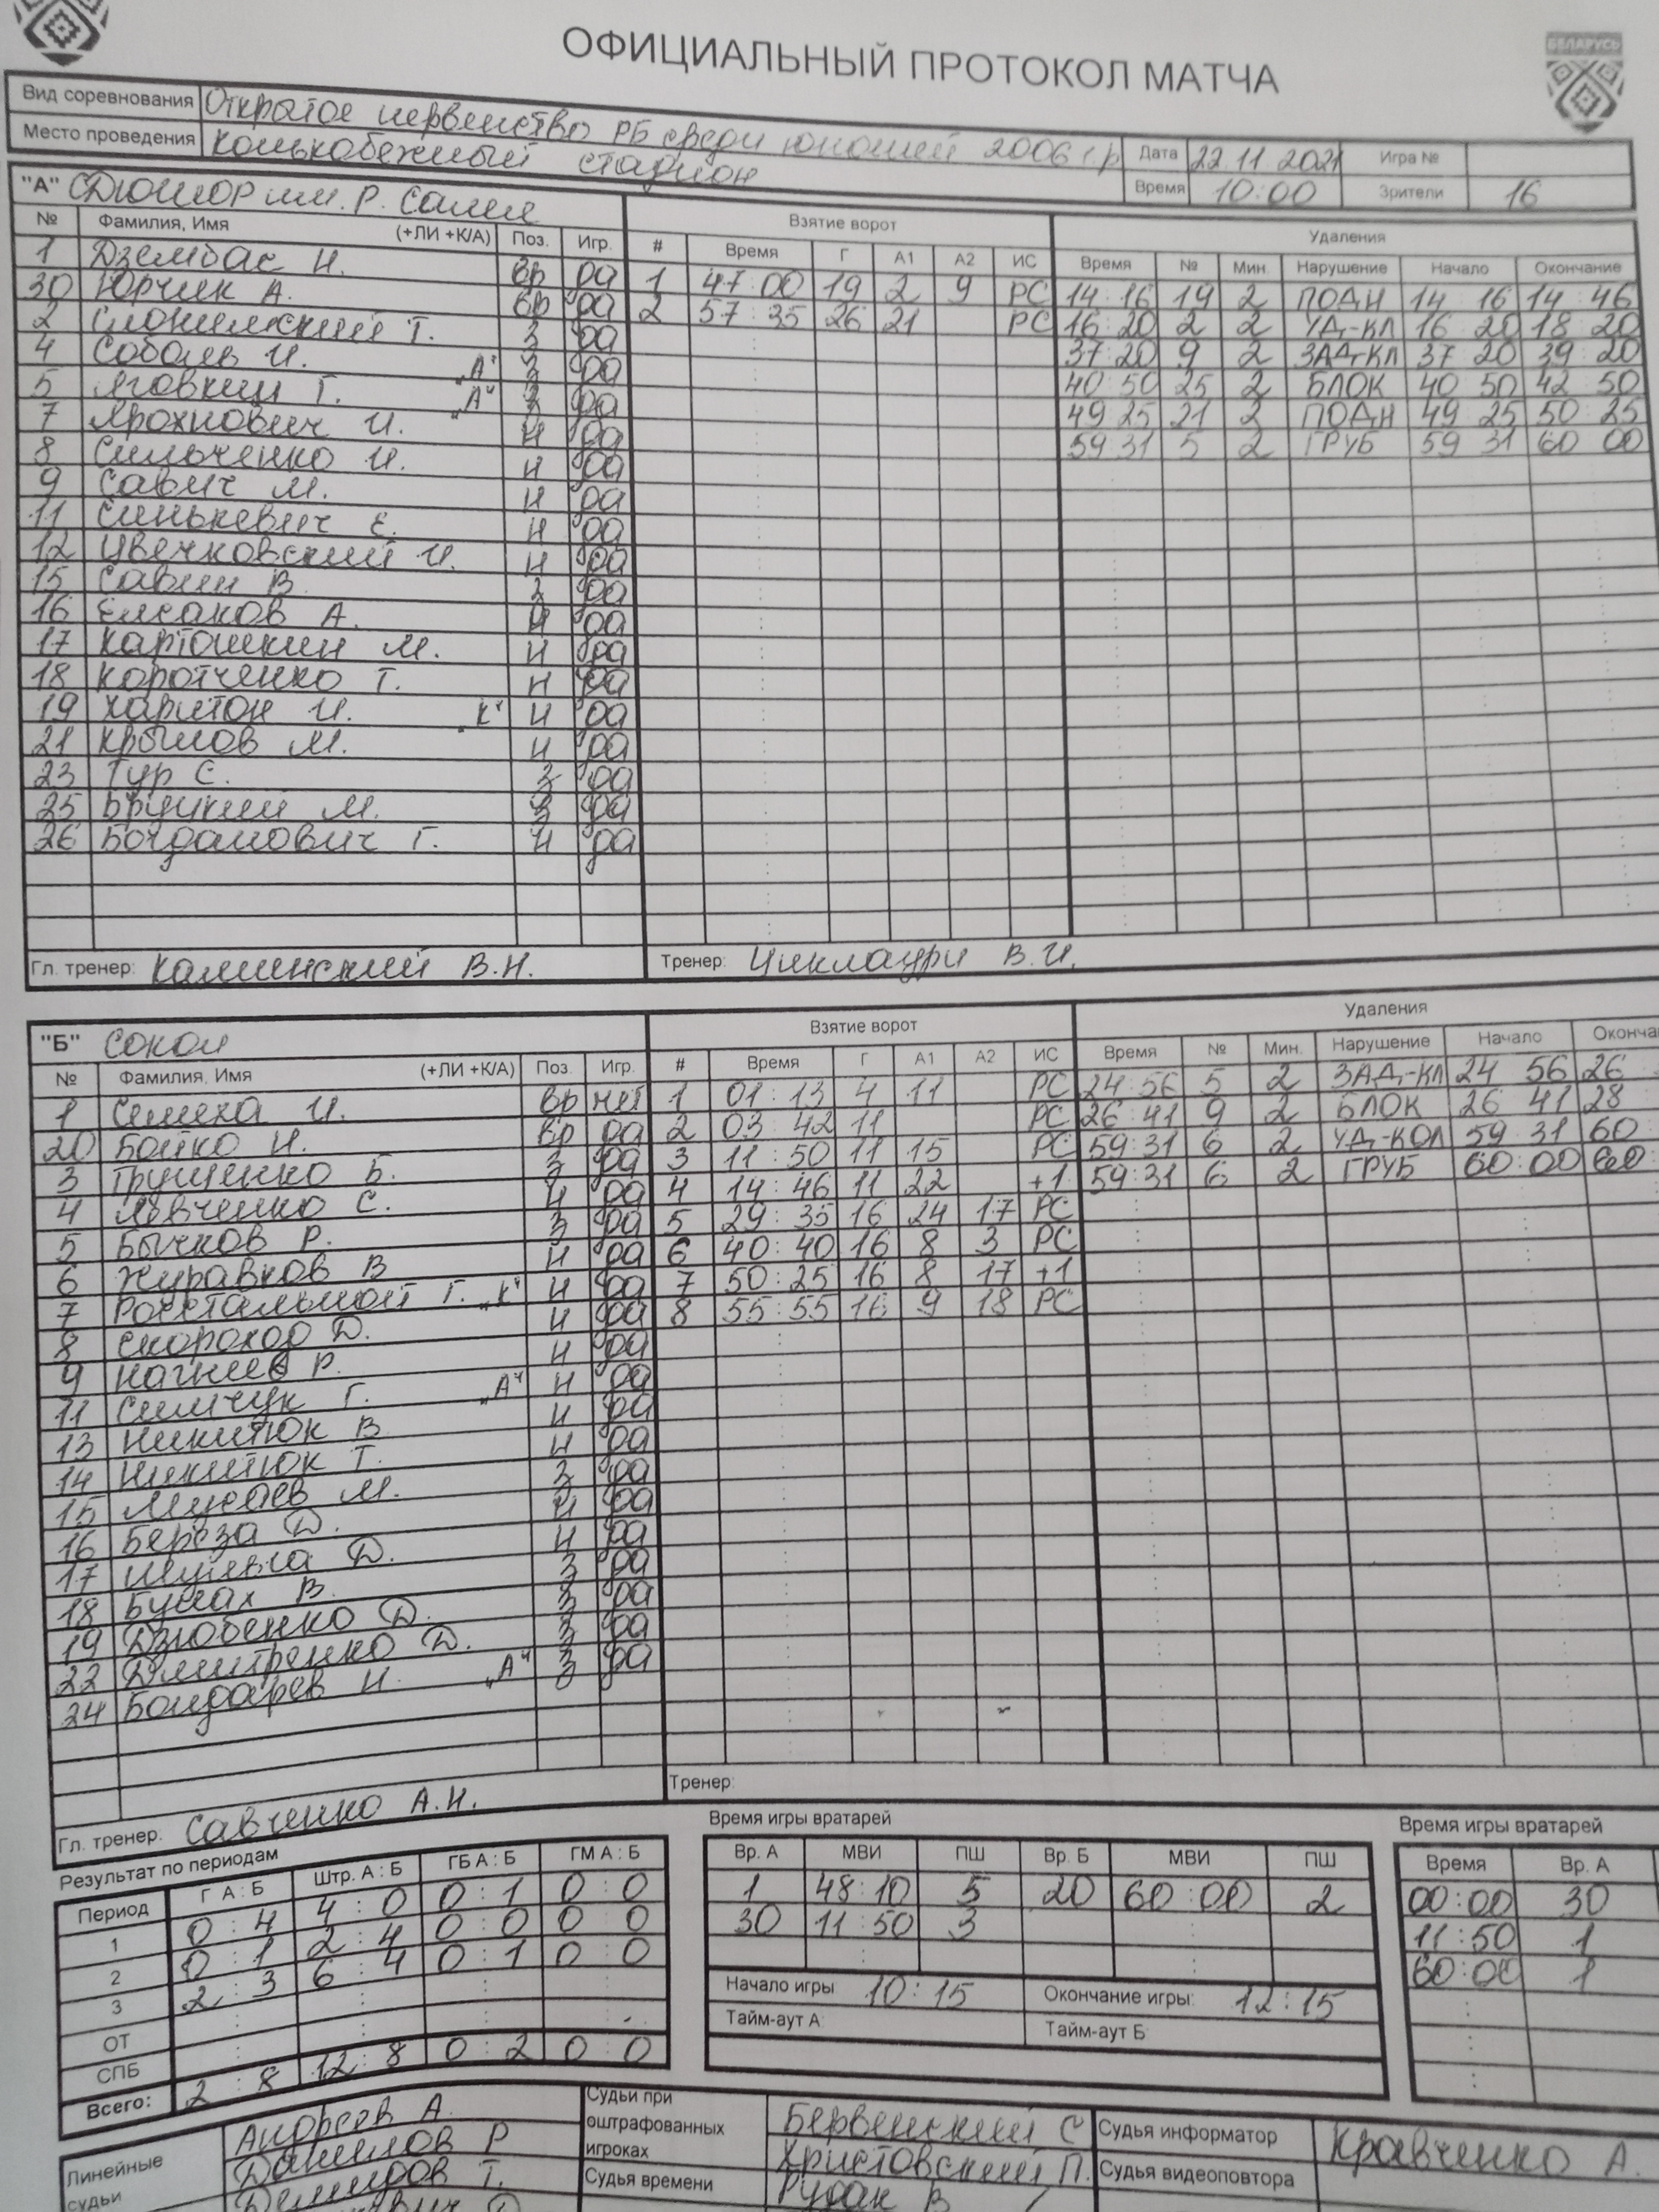 БЕЛАРУСЬ
ОФИЦИАЛЬНЫЙ ПРОТОКОЛ МАТЧА
Вид соревнования Открытое первенство РБ среди юношей 2006 г.р Дата 22.11.2021 Игра №
Место проведения Конькобежный стадион Время 10:00 Зрители 16
"А" СДЮШОР им. Р. Салея Взятие ворот Удаления
№ Фамилия, Имя (+ЛИ +К/А) Поз. Игр. # Время Г А1 А2 ИС Время № Мин. Нарушение Начало Окончание
1 Дзембас Н. вр да 1 47:00 19 2 9 РС 14:16 19 2 ПОДН 14 16 14 46
30 Юрчик А. вр да 2 57:35 26 21 РС 16:20 2 2 УД-КЛ 16 20 18 20
2 Слонимский Т. З да 37:20 9 2 ЗАД-КЛ 37 20 39 20
4 Соболь И. „А" З да 40:50 25 2 БЛОК 40 50 42 50
5 Яговкин Т. „А" З да 49:25 21 2 ПОДН 49 25 50 25
7 Ярохнович И. Н да 59:31 5 2 ГРУБ 59 31 60 00
8 Сильченко И. Н да
9 Савич М. Н да
11 Синькевич Е. Н да
12 Цвечковский И. Н да
15 Савин В З да
16 Елсаков А. Н да
17 Картошкин М. Н да
18 Коротченко Т. Н да
19 Харитон И. „К" Н да
21 Крылов М. Н да
23 Тур С. З да
25 Бруцкий М. З да
26 Богданович Г. Н да
Гл. тренер: Калинский В.Н. Тренер: Чиклаури В.И.
"Б" Сокол Взятие ворот Удаления
№ Фамилия, Имя (+ЛИ +К/А) Поз. Игр. # Время Г А1 А2 ИС Время № Мин. Нарушение Начало
1 Семеха И. вр нет 1 01:13 4 11 РС 24:56 5 2 ЗАД-КЛ 24 56 26
20 Бойко Н. вр да 2 03:42 11 РС 26:41 9 2 БЛОК 26 41 28
3 Грищенко Б. З да 3 11:50 11 15 РС 59:31 6 2 УД-КОЛ 59 31 60
4 Левченко С. Н да 4 14:46 11 22 +1 59:31 6 2 ГРУБ 60:00 60
5 Бычков Р. З да 5 29:35 16 24 17 РС
6 Журавков В Н да 6 40:40 16 8 3 РС
7 Росстальной Г. „К" Н да 7 50:25 16 8 17 +1
8 Скороход Д. Н да 8 55:55 16 9 18 РС
9 Нагиев Р. Н да
11 Симчук Г. „А" Н да
13 Никитюк В Н да
14 Никитюк Т. Н да
15 Мусаев М. З да
16 Берёза Д. Н да
17 Шульга Д. Н да
18 Бушах В. З да
19 Дзюбенко Д. З да
22 Дмитренко Д. З да
24 Бондарев Н. „А" З да
Гл. тренер: Савченко А.Н. Тренер:
Результат по периодам
Период Г А : Б Штр. А : Б ГБ А : Б ГМ А : Б
1 0 : 4 4 : 0 0 : 1 0 : 0
2 0 : 1 2 : 4 0 : 0 0 : 0
3 2 : 3 6 : 4 0 : 1 0 : 0
ОТ
СПБ
Всего: 2 : 8 12 : 8 0 : 2 0 : 0
Время игры вратарей
Вр. А МВИ ПШ Вр. Б МВИ ПШ
1 48:10 5 20 60:00 2
30 11:50 3
Начало игры 10:15 Окончание игры: 12:15
Тайм-аут А: Тайм-аут Б
Время игры вратарей
Время Вр. А
00:00 30
11:50 1
60:00 1
Линейные судьи Андреев А.
Данилов Р
Демидов Т.
Судьи при оштрафованных игроках Бервенский С
Христовский П.
Судья времени Рудак В
Судья информатор Кравченко А.
Судья видеоповтора